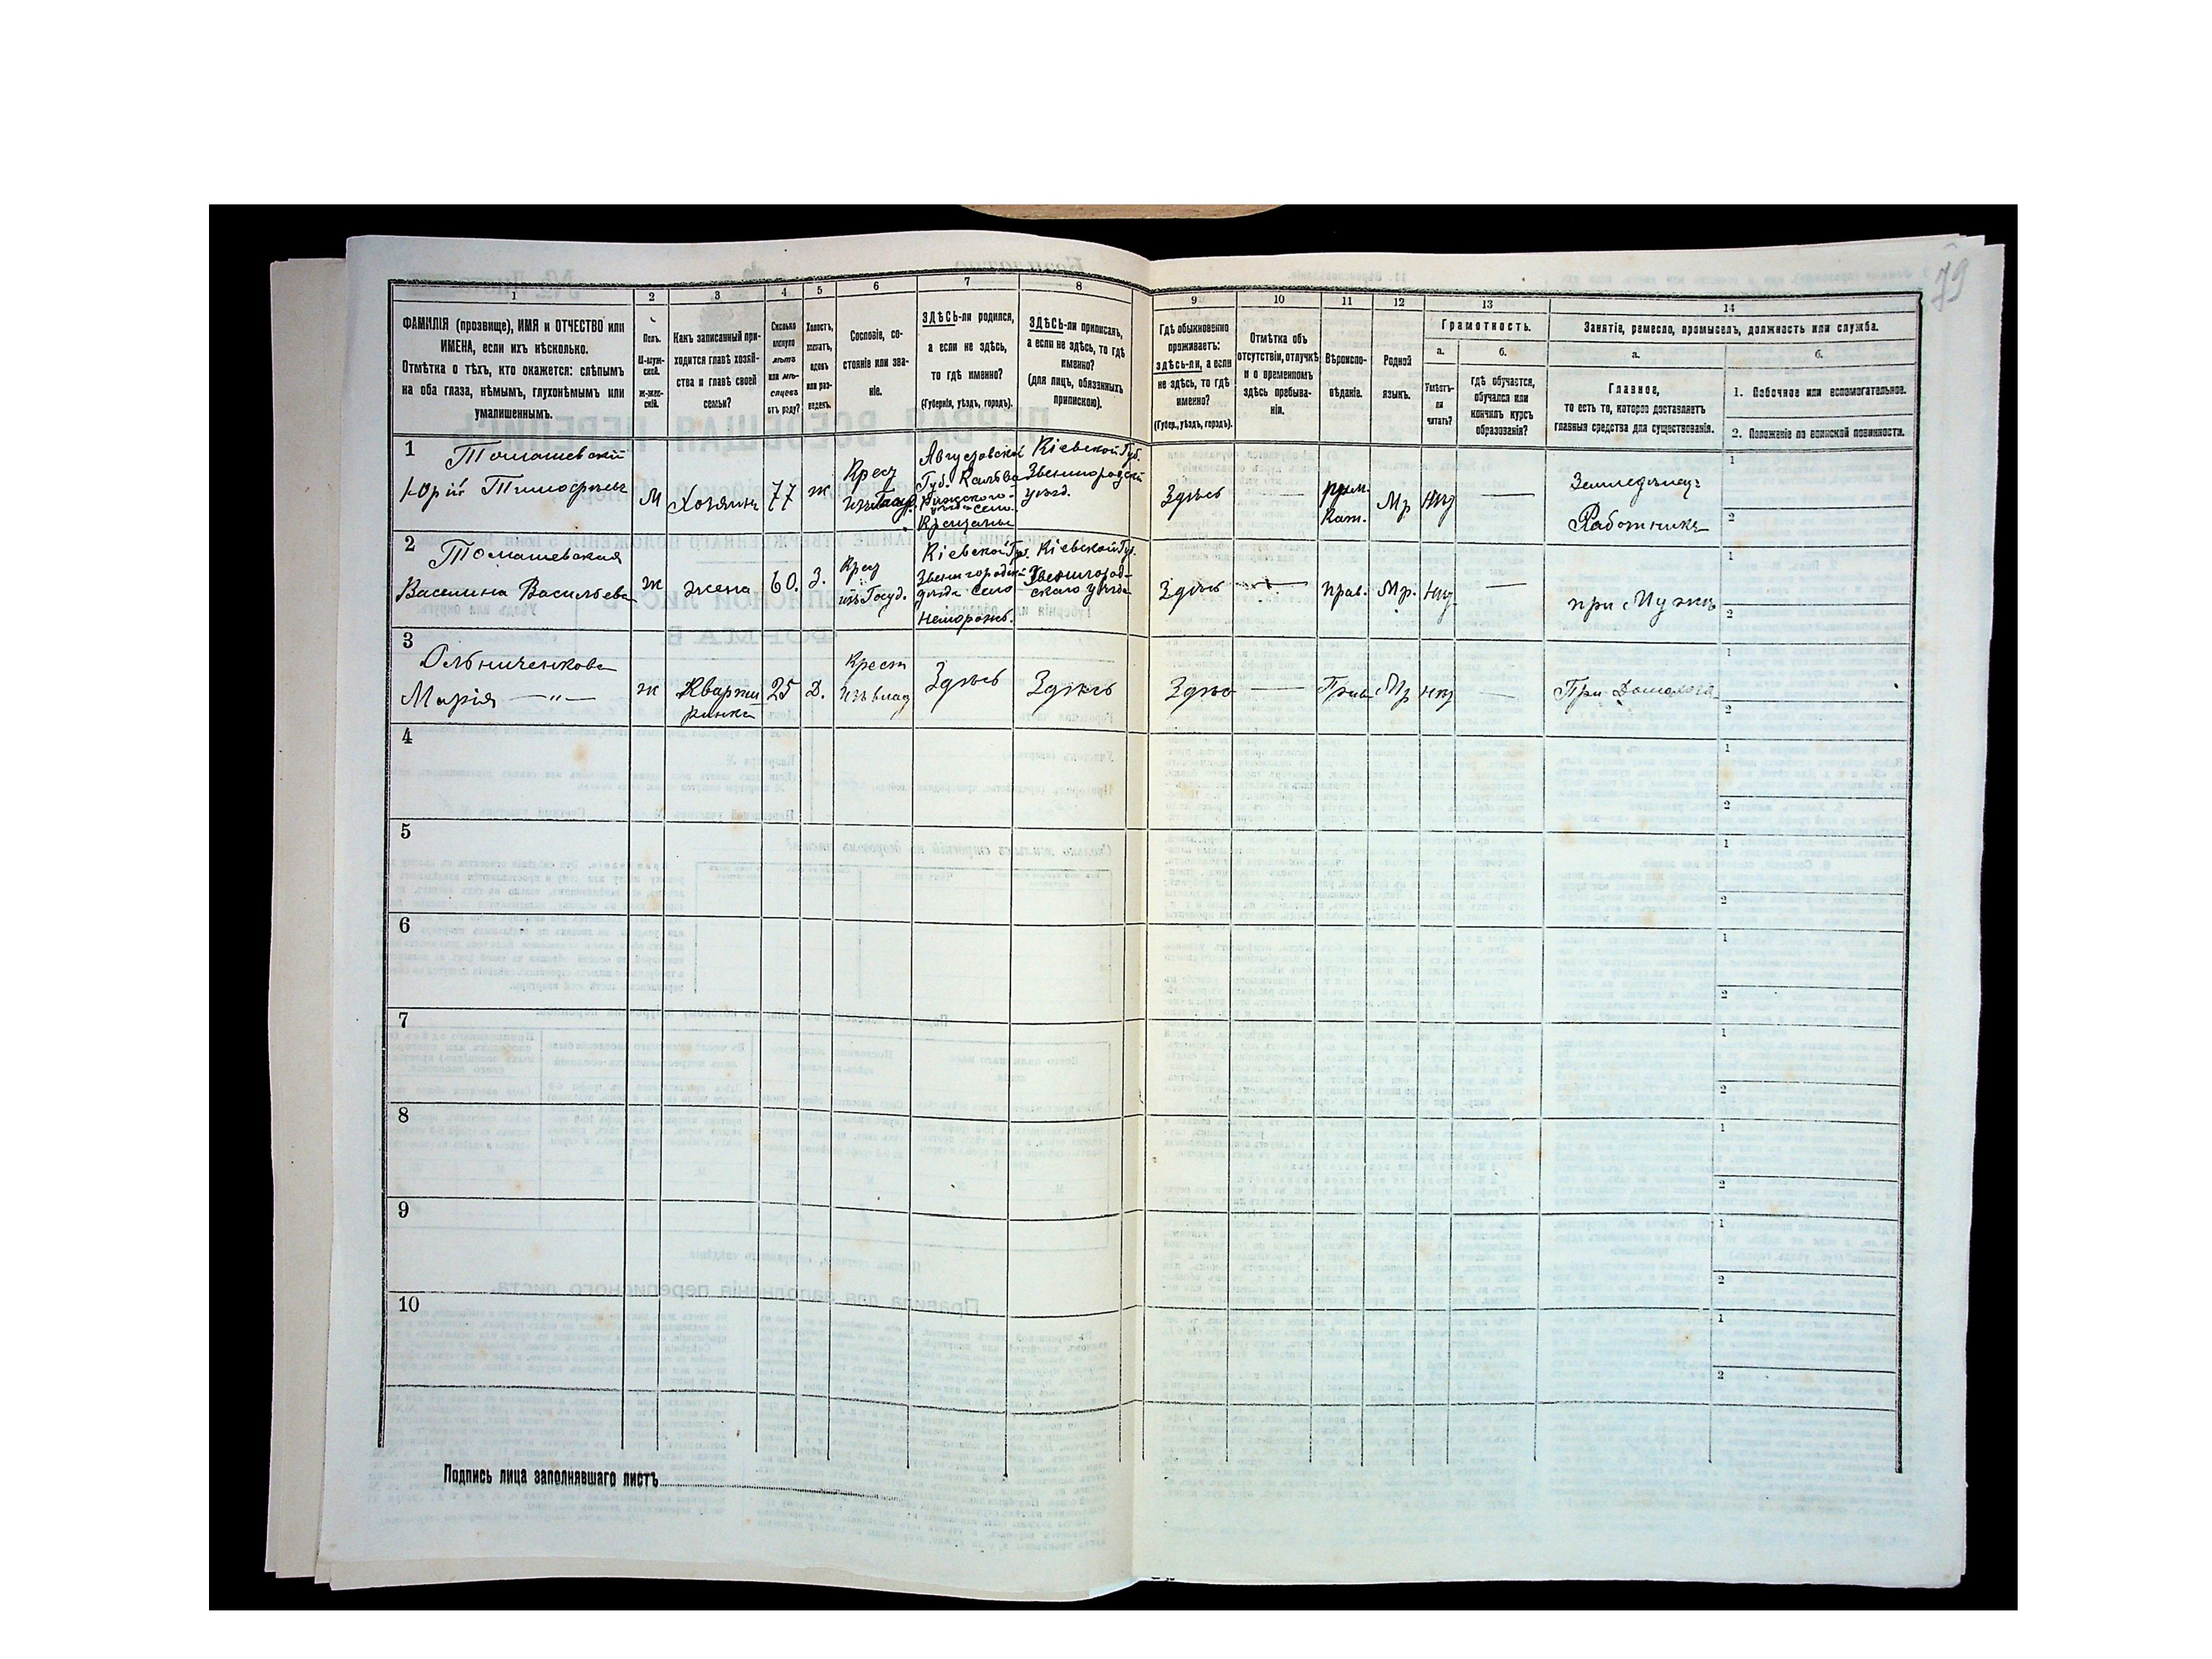 79
1 2 3 4 5 6 7 8 9 10 11 12 13 14
ФАМИЛІЯ (прозвище), ИМЯ и ОТЧЕСТВО или
ИМЕНА, если ихъ нѣсколько.
Отмѣтка о тѣхъ, кто окажется: слѣпымъ
на оба глаза, нѣмымъ, глухонѣмымъ или
умалишеннымъ.
Полъ.
М-муж-
ской.
Ж-жен-
скій.
Какъ записанный при-
ходится главѣ хозяй-
ства и главѣ своей
семьи?
Сколько
минуло
лѣтъ
или мѣ-
сяцевъ
отъ роду?
Холостъ,
женатъ,
вдовъ
или раз-
веденъ.
Сословіе, со-
стояніе или зва-
ніе.
ЗДѢСЬ-ли родился,
а если не здѣсь,
то гдѣ именно?
(Губернія, уѣздъ, городъ).
ЗДѢСЬ-ли приписанъ,
а если не здѣсь, то гдѣ
именно?
(для лицъ, обязанныхъ
припискою).
Гдѣ обыкновенно
проживаетъ:
здѣсь-ли, а если
не здѣсь, то гдѣ
именно?
(Губер., уѣздъ, городъ).
Отмѣтка объ
отсутствіи, отлучкѣ
и о временномъ
здѣсь пребыва-
ніи.
Вѣроиспо-
вѣданіе.
Родной
языкъ.
Грамотность.
а.
Умѣетъ-
ли
читать?
б.
гдѣ обучается,
обучался или
кончилъ курсъ
образованія?
Занятіе, ремесло, промыселъ, должность или служба.
а.
Главное,
то есть то, которое доставляетъ
главныя средства для существованія.
б.
1. Побочное или вспомогательное.
2. Положеніе по воинской повинности.
1
Томашевскій
Юрій Тимофѣевъ
М
Хозяинъ
77
ж
Крест
изъ Госуд.
Августовской
Губ.
село
Кіевской Губ.
Звенигородскій
уѣзд.
Здѣсь
—
рим.
Кат.
Мр
нѣт
—
Земледѣлец
Работникъ
1
2
2
Томашевская
Василина Васильева
ж
жена
60.
З.
Крест
изъ Госуд.
Кіевской Губ.
Звенигородскій
уѣзда село
Неморожъ.
Кіевской Губ.
Звенигород-
скаго уѣзда
Здѣсь
—
прав.
Мр.
нѣт
—
при Мужѣ
1
2
3
Марія —"—
ж
Кварти
рантка
25
Д.
Крест
изъ влад
Здѣсь
Здѣсь
Здѣсь
—
Мр
нѣт
—
При
1
2
4
1
2
5
1
2
6
1
2
7
1
2
8
1
2
9
1
2
10
1
2
Подпись лица заполнявшаго листъ